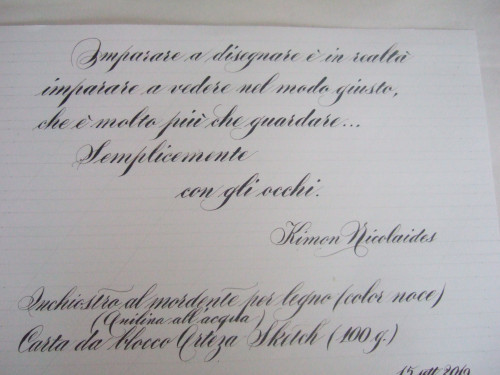 Imparare a disegnare è in realtà
imparare a vedere nel modo giusto,
che è molto più che guardare...
Semplicemente
con gli occhi.
Kimon Nicolaides
Inchiostro al mordente per legno (color noce)
(Anilina all'acqua)
Carta da blocco Arteza Sketch (100 g.)
15 ott 2019